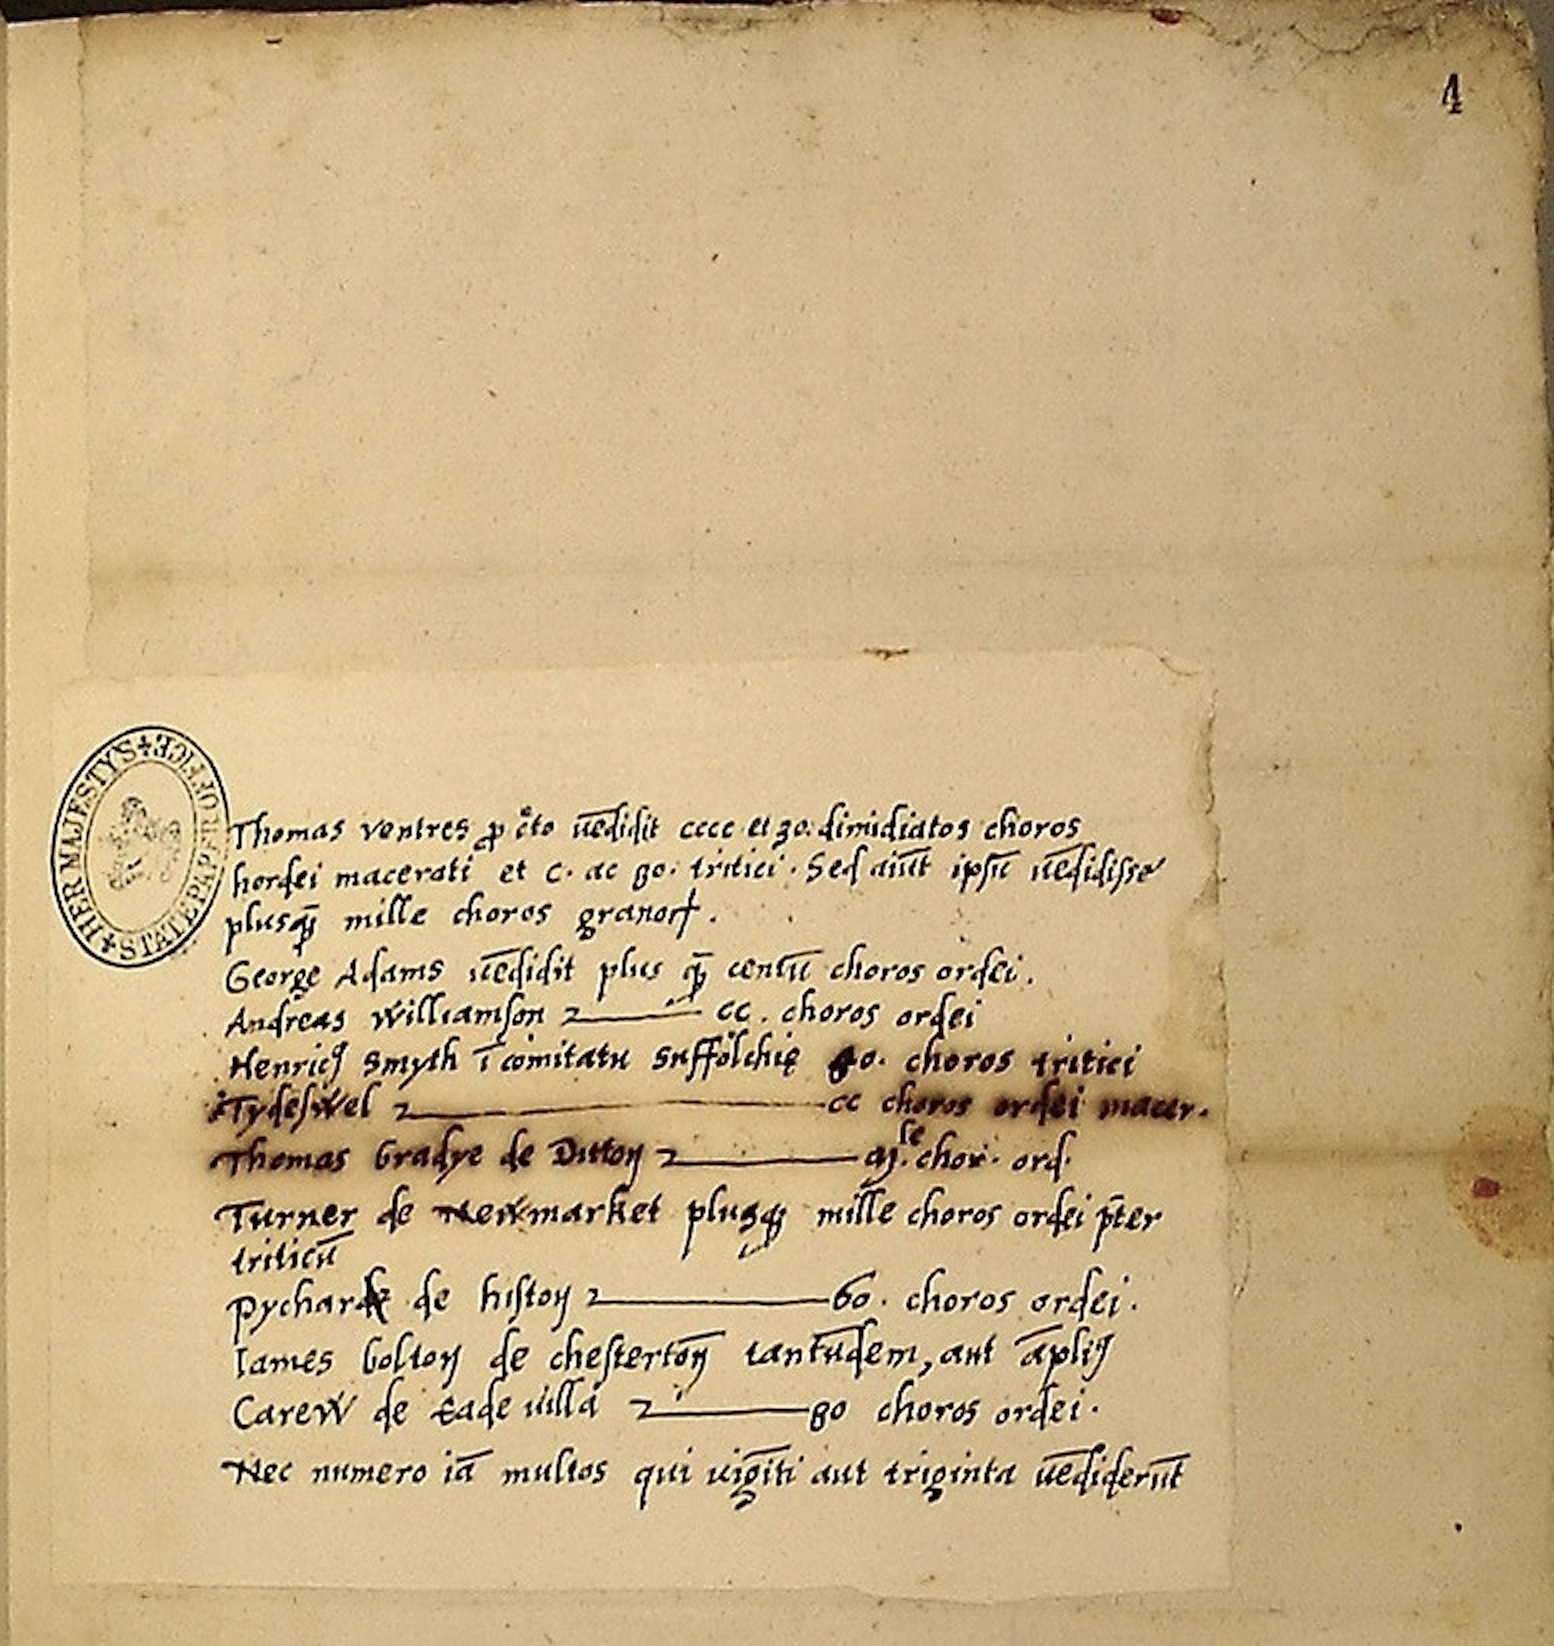 4
HER MAJESTY'S STATE PAPER OFFICE
Thomas ventres ꝓ c̊to uēdidit cccc et 30. dimidiatos choros
hordei macerati et c. ac 80. tritici. Sed aiūt ipsū uēdidisse
plusꝙ̄ mille choros granoꝝ.
George Adams uēdidit plus ꝙ̄ centū choros ordei.
Andreas Williamson 2——— cc. choros ordei
Henricꝰ Smyth ī comitatu Suffolchię 40. choros tritici
Tydeswel 2——— cc choros ordei macer.
Thomas bradye de Ditton 2——— chor. ord.
Turner de Newmarket plusꝙ mille choros ordei p̄ter
triticū
Pychard de histon 2——— 60. choros ordei.
Iames bolton de chestertōn tantūdem, aut āpliꝰ
Carew de eade uilla 2——— 80 choros ordei.
Nec numero iā multos qui uigīti aut triginta uēdiderūt